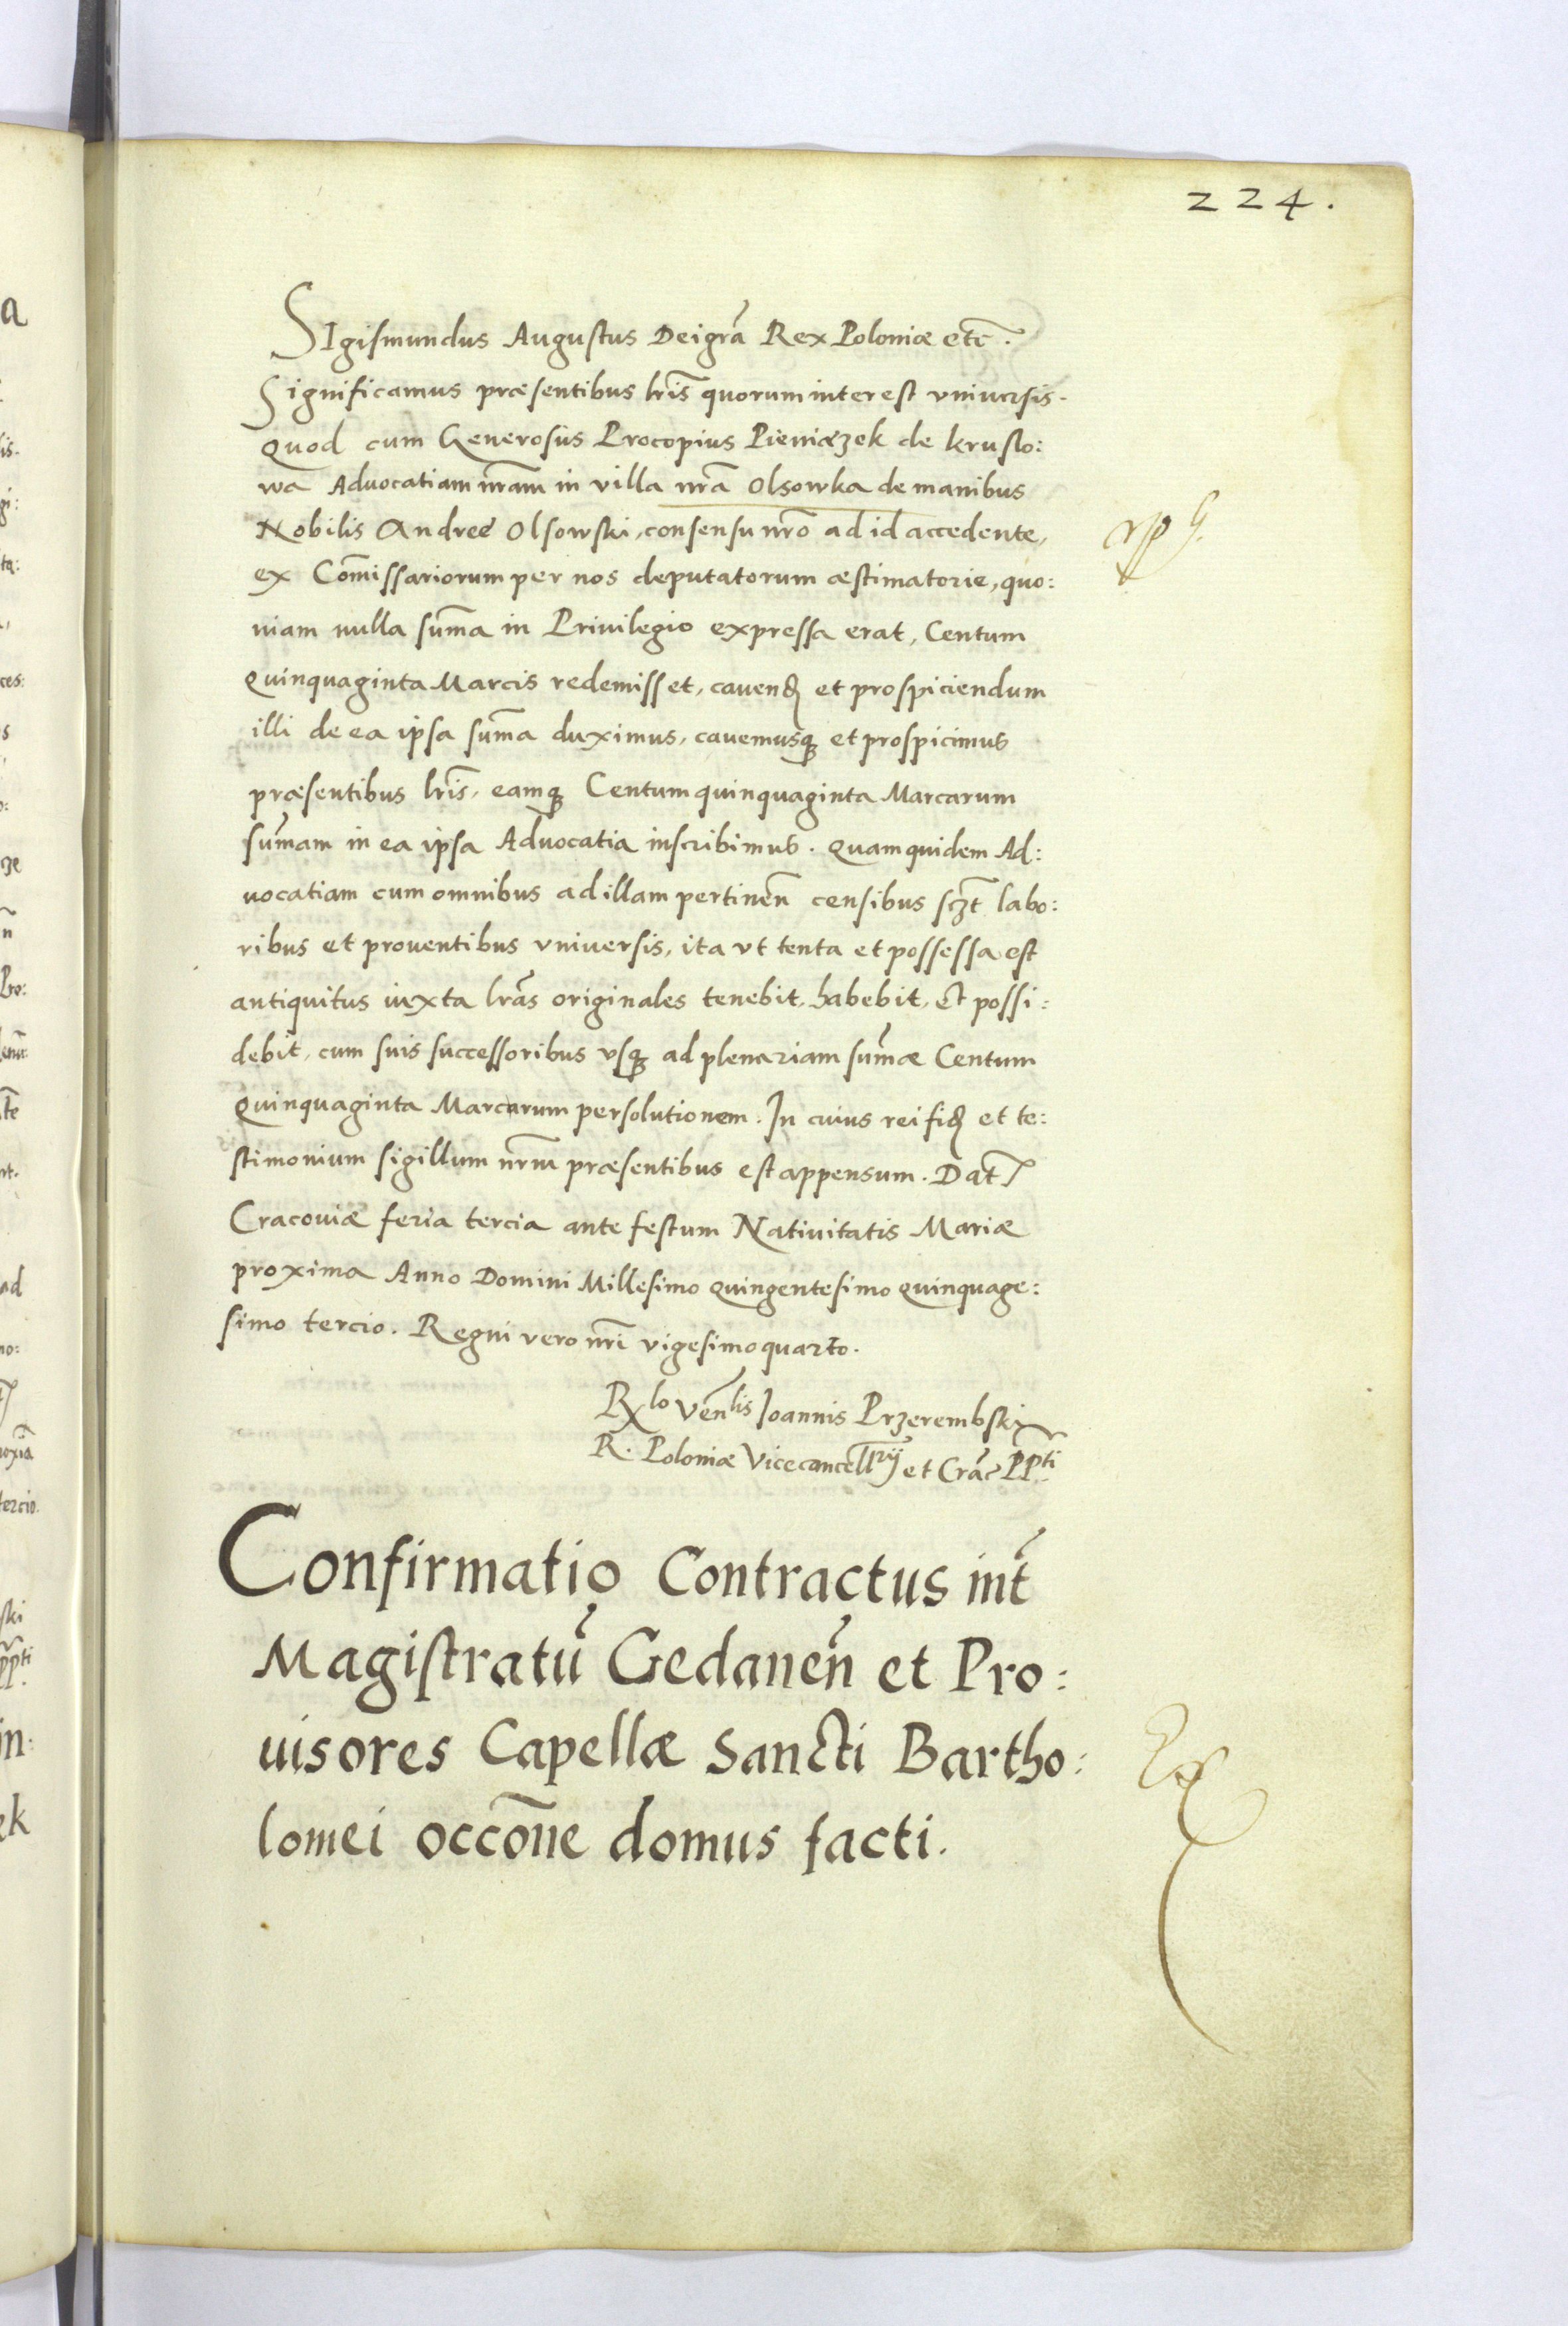 224.
SIgismundus Augustus Deigrã Rex Poloniæ etc̃.
Significamus præsentibus lr̃is quorum interest vniuersis.
Quod cum Generosus Procopius Pieniążek de kruslo:
wa Aduocatiam nr̃am in villa nr̃a Olsowka de manibus
Nobilis Andreę Olsowski, consensu nr̃o ad id accedente,
ex Com̃issariorum per nos deputatorum æstimatorie, quo:
niam nulla sum̃a in Priuilegio expressa erat, Centum
quinquaginta Marcis redemisset, cauenḋ et prospiciendum
illi de ea ipsa sum̃a duximus, cauemusq̃ et prospicimus
præsentibus lr̃is, eamq̃ Centum quinquaginta Marcarum
sum̃am in ea ipsa Aduocatia inscribimus. quam quidem Ad:
uocatiam cum omnibus ad illam pertinen̄ censibus sczt̃ labo:
ribus et prouentibus vniuersis, ita vt tenta et possessa est
antiquitus iuxta lr̃as originales tenebit, habebit, et possi:
debit, cum suis successoribus vsq̃ ad plenariam sum̃æ Centum
quinquaginta Marcarum persolutionem. In cuius rei fiḋ et te:
stimonium sigillum nr̃m præsentibus est appensum. Dat̃
Cracouiæ feria tercia ante festum Natiuitatis Mariæ
proxima Anno Domini Millesimo quingentesimo quinquage:
simo tercio. Regni vero nr̃i vigesimoquarto.
Rlo Ven̄lis Joannis Przerembski
R. Poloniæ Vicecancellrij et Crac̃ PPti
Confirmatio Contractus int̃
Magistratū Gedanen̄ et Pro:
uisores Capellæ Sancti Bartho:
lomei occōne domus facti.